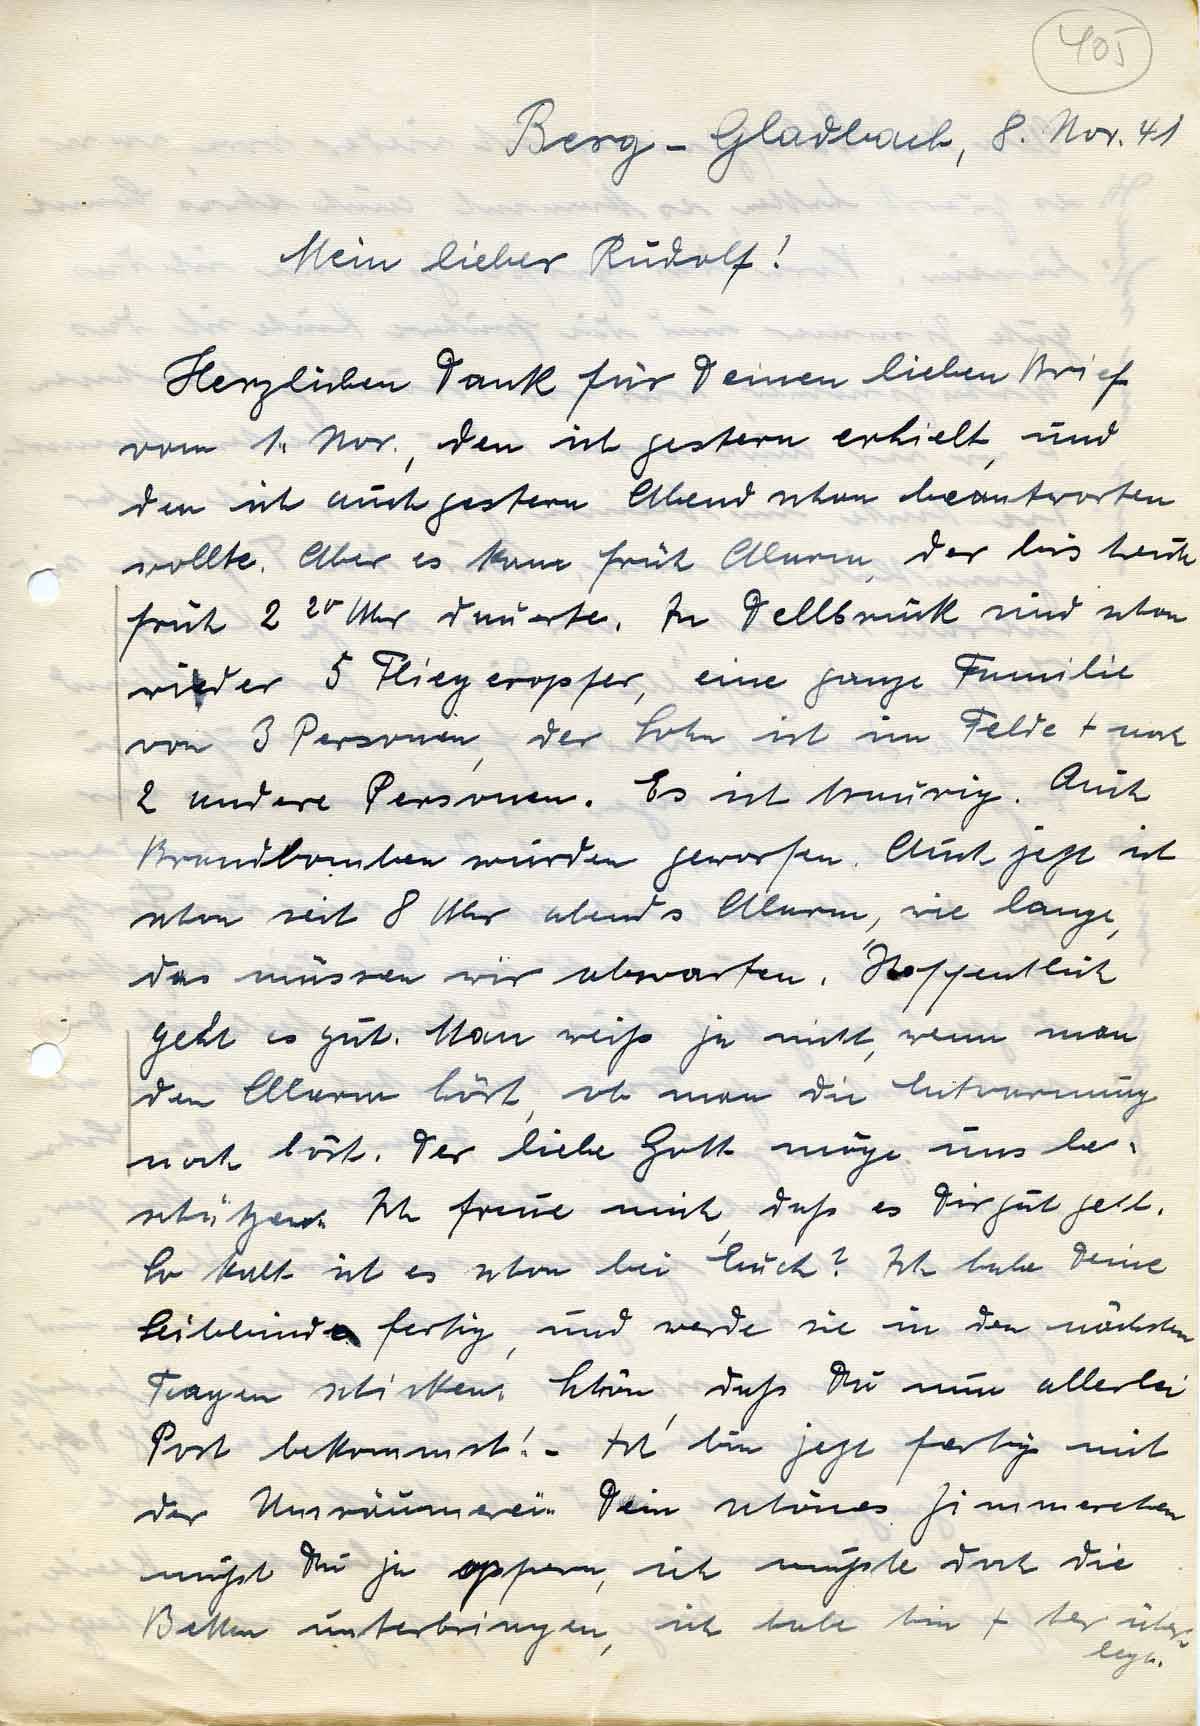 405
Berg-Gladbach, 8. Nov. 41
Mein lieber Rudolf!
Herzlichen Dank für Deinen lieben Brief
vom 1. Nov., den ich gestern erhielt, und
den ich auch gestern Abend schon beantworten
wollte. Aber es kam früh Alarm, der bis heute
früh 2 20 Uhr dauerte. In Dellbrück sind schon
wieder 5 Fliegeropfer, eine ganze Familie
von 3 Personen, der Sohn ist im Felde + noch
2 andere Personen. Es ist traurig. Auch
Brandbomben wurden geworfen. Auch jetzt ist
schon seit 8 Uhr abends Alarm, wie lange,
das müssen wir abwarten. Hoffentlich
geht es gut. Man weiß ja nicht, wenn man
den Alarm hört, ob man die Entwarnung
noch hört. Der liebe Gott möge uns be-
schützen. Ich freue mich, daß es Dir gut geht.
So kalt ist es schon bei Euch? Ich habe Deine
Leibbinde fertig, und werde sie in den nächsten
Tagen schicken. Schön, daß Du nun allerlei
Post bekommst! - Ich bin jetzt fertig mit
der Umräumerei. Dein schönes Zimmerchen
mußt Du ja opfern, ich mußte doch die
Betten unterbringen, ich habe hin + her über-
legt.